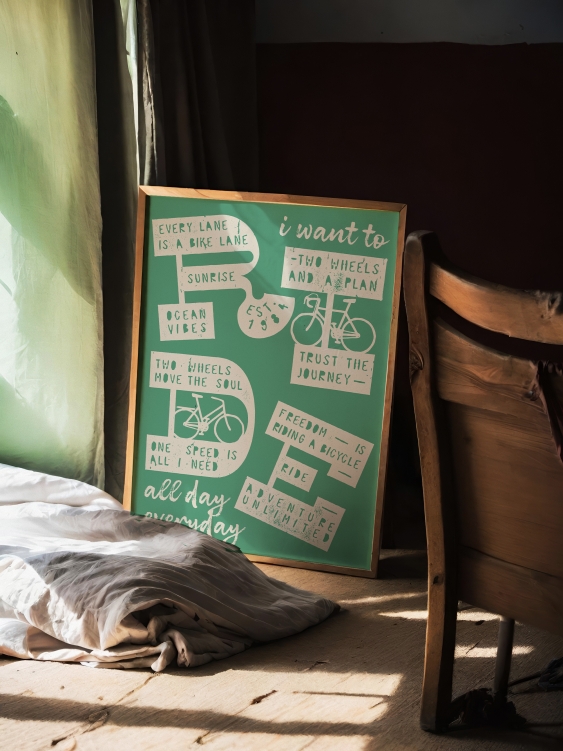 i want to
EVERY LANE
IS A BIKE LANE
SUNRISE
OCEAN
VIBES
EST.
1984
-TWO WHEELS
AND A PLAN
TRUST THE
JOURNEY—
TWO WHEELS
MOVE THE SOUL
ONE SPEED IS
ALL I NEED
FREEDOM — IS
RIDING A BICYCLE
RIDE
ADVENTURE
UNLIMITED
all day
everyday